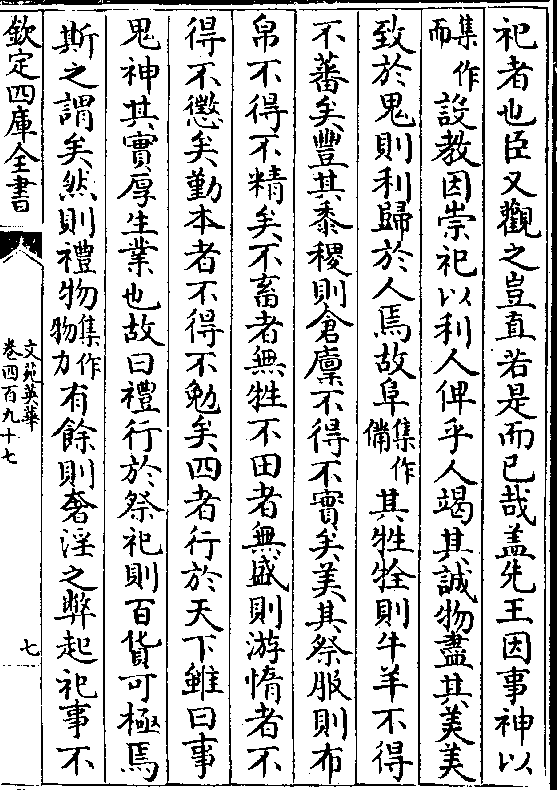 祀者也臣又觀之豈直若是而已哉盖先王因事神以
集作而設教因崇祀以利人俾乎人竭其誠物盡其美美
致於鬼則利歸於人焉故阜集作備其牲牷則牛羊不得
不蕃矣豐其黍稷則倉廩不得不實矣美其祭服則布
帛不得不精矣不畜者無牲不田者無盛則游惰者不
得不懲矣勤本者不得不勉矣四者行於天下雖曰事
鬼神其實厚生業也故曰禮行於祭祀則百貨可極焉
斯之謂矣然則禮物集作物力有餘則奢淫之弊起祀事不
欽定四庫全書
文苑英華
卷四百九十七
七